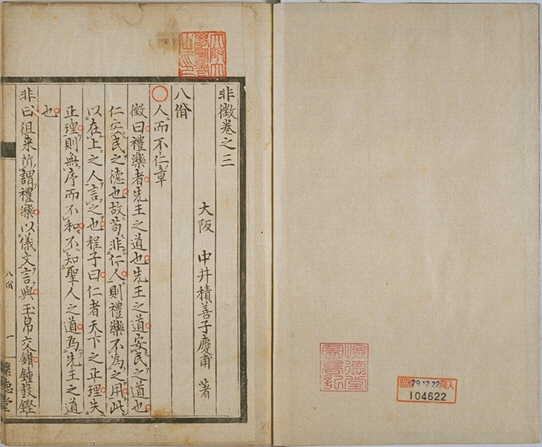 非徵卷之三
大阪 中井積善子慶甫 著
八佾
人而不仁章
徵曰禮樂者先王之道也先王之道安民之道也
仁安民之德也故苟非仁人則禮樂不為之用此
以在上之人言之也程子曰仁者天下之正理失
正理則無序而不和不知聖人之道為先王之道
也
非曰徂來所謂禮樂以儀文言與玉帛交錯鍾鼓鏗
八佾 一
懷德堂
104622